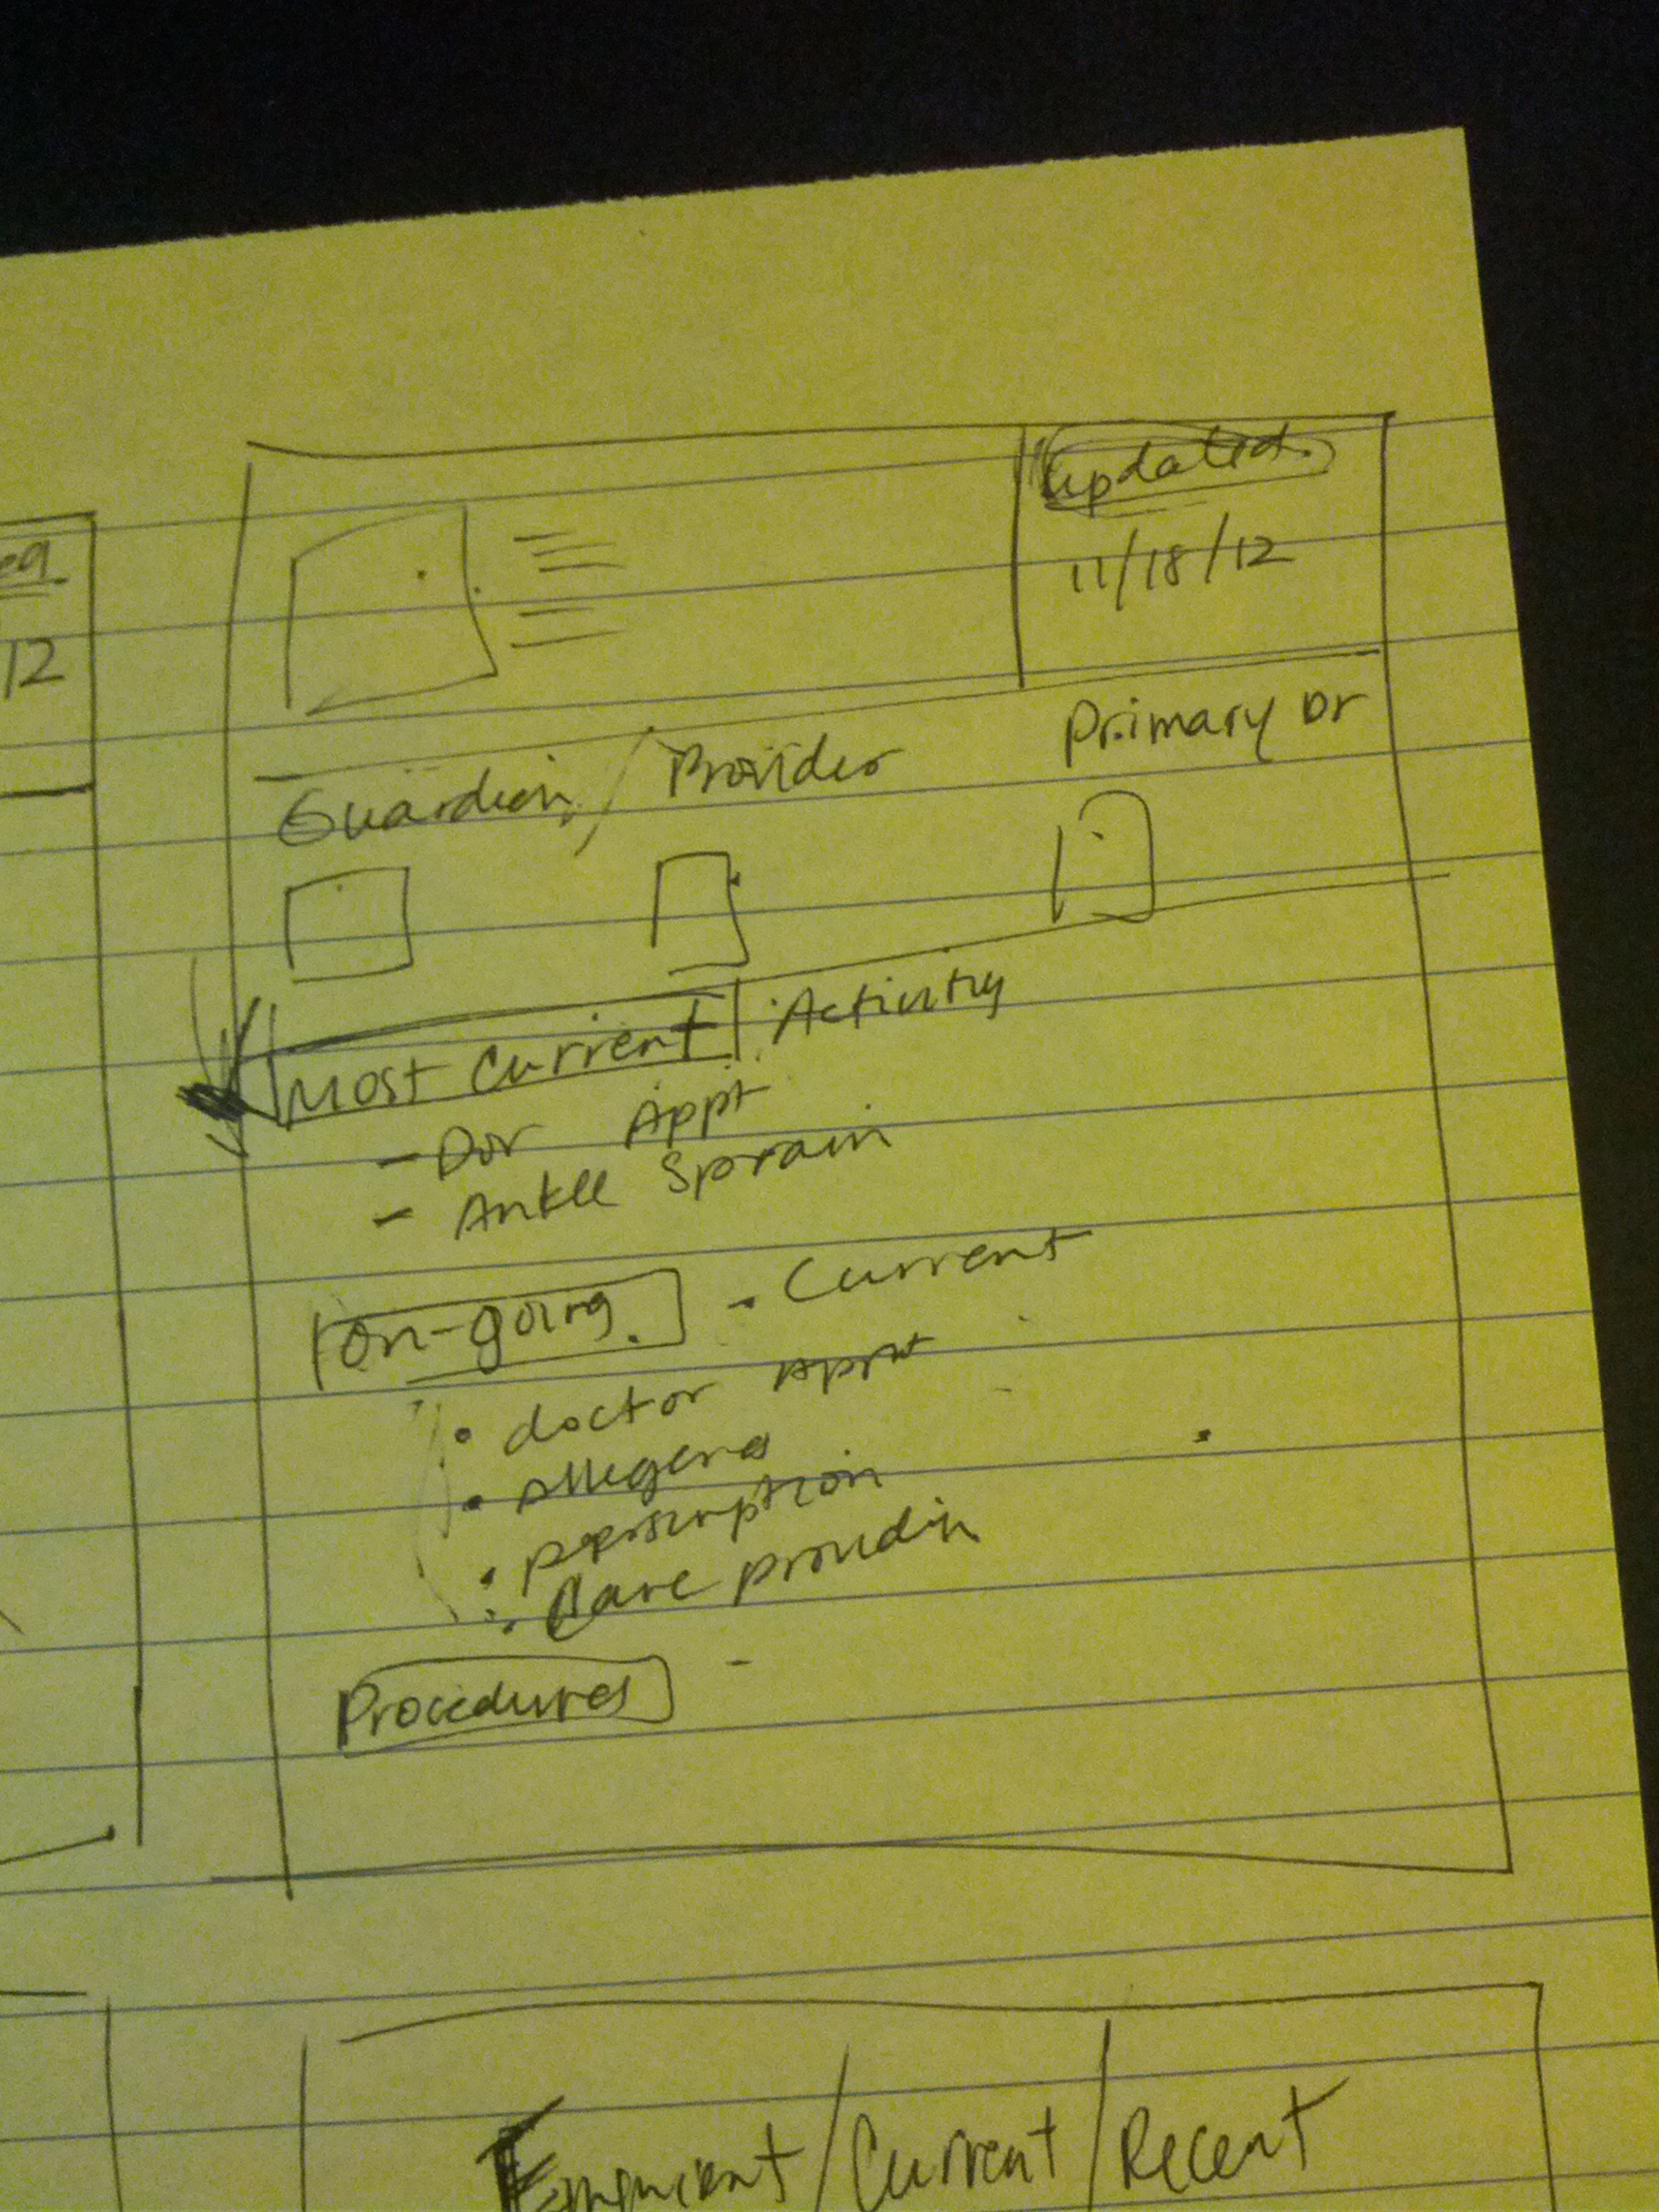 Updated
11/18/12
12
Guardian / Provider
Primary Dr
Most Current Activity
- Dor Appt
- Ankle Sprain
on-going - Current
• doctor appt
• Allegeres
• perscription
• Care providin
Procedures -
/ Current / Recent